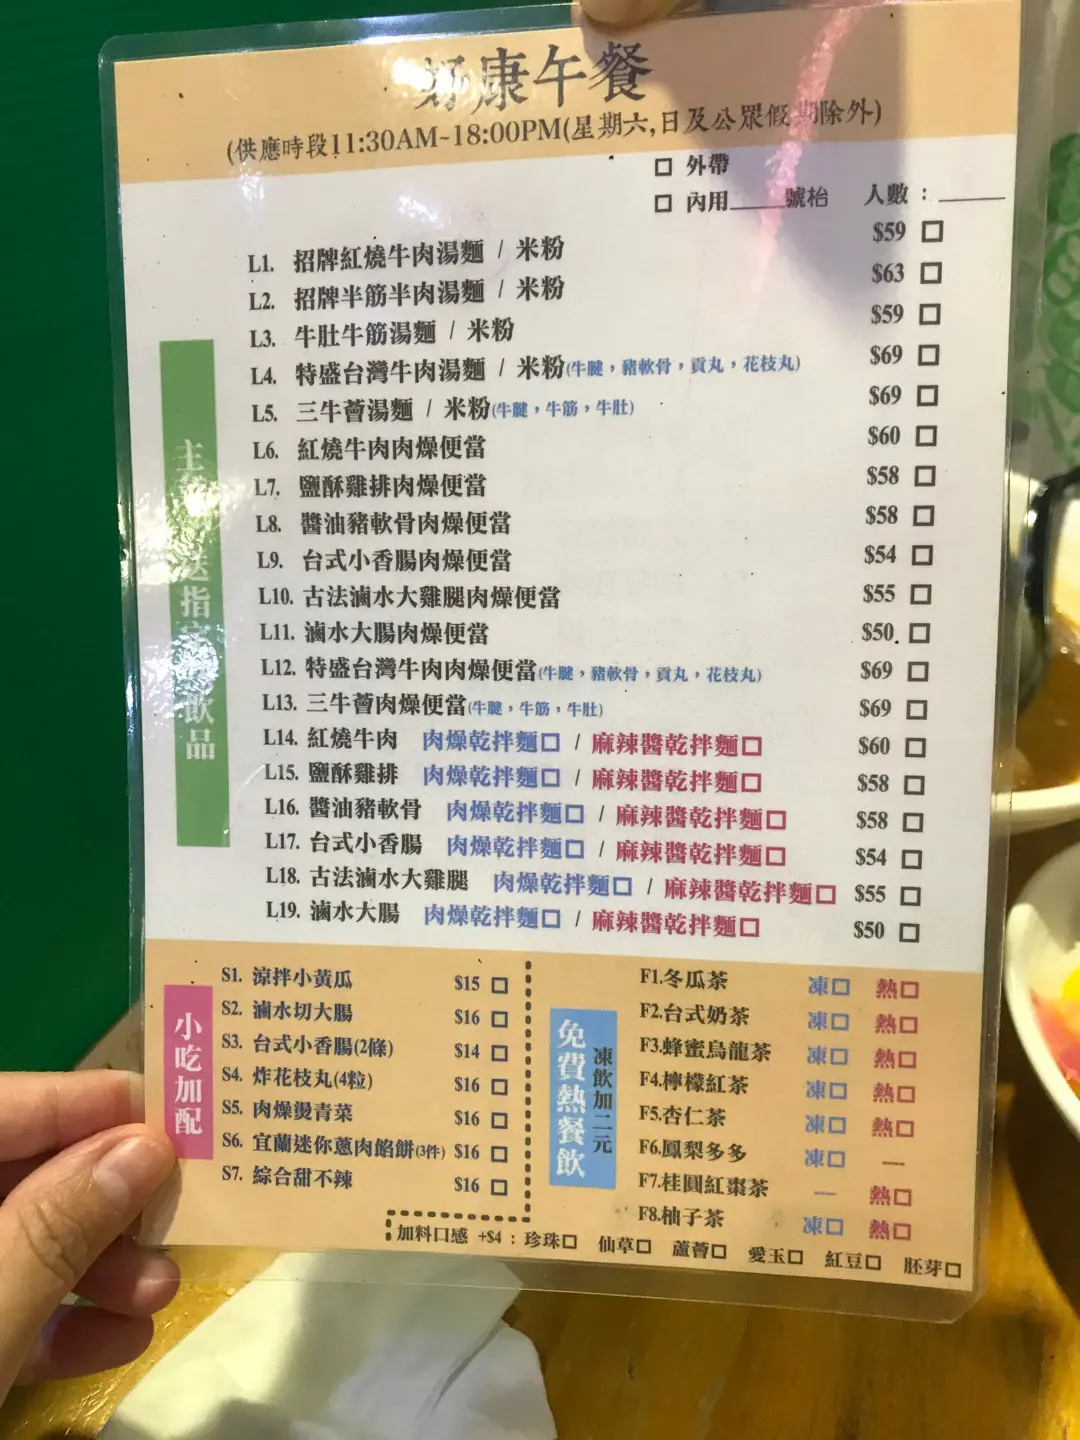 好康午餐
(供應時段11:30AM~18:00PM(星期六,日及公眾假期除外)
外帶
內用____號枱 人數：____
主 送指 飲品
L1. 招牌紅燒牛肉湯麵 / 米粉 $59
L2. 招牌半筋半肉湯麵 / 米粉 $63
L3. 牛肚牛筋湯麵 / 米粉 $59
L4. 特盛台灣牛肉湯麵 / 米粉(牛腱，豬軟骨，貢丸，花枝丸) $69
L5. 三牛薈湯麵 / 米粉(牛腱，牛筋，牛肚) $69
L6. 紅燒牛肉肉燥便當 $60
L7. 鹽酥雞排肉燥便當 $58
L8. 醬油豬軟骨肉燥便當 $58
L9. 台式小香腸肉燥便當 $54
L10. 古法滷水大雞腿肉燥便當 $55
L11. 滷水大腸肉燥便當 $50
L12. 特盛台灣牛肉肉燥便當(牛腱，豬軟骨，貢丸，花枝丸) $69
L13. 三牛薈肉燥便當(牛腱，牛筋，牛肚) $69
L14. 紅燒牛肉 肉燥乾拌麵 / 麻辣醬乾拌麵 $60
L15. 鹽酥雞排 肉燥乾拌麵 / 麻辣醬乾拌麵 $58
L16. 醬油豬軟骨 肉燥乾拌麵 / 麻辣醬乾拌麵 $58
L17. 台式小香腸 肉燥乾拌麵 / 麻辣醬乾拌麵 $54
L18. 古法滷水大雞腿 肉燥乾拌麵 / 麻辣醬乾拌麵 $55
L19. 滷水大腸 肉燥乾拌麵 / 麻辣醬乾拌麵 $50
小吃加配
S1. 涼拌小黃瓜 $15
S2. 滷水切大腸 $16
S3. 台式小香腸(2條) $14
S4. 炸花枝丸(4粒) $16
S5. 肉燥燙青菜 $16
S6. 宜蘭迷你蔥肉餡餅(3件) $16
S7. 綜合甜不辣 $16
免費熱餐飲
凍飲加二元
F1.冬瓜茶 凍 熱
F2.台式奶茶 凍 熱
F3.蜂蜜烏龍茶 凍 熱
F4.檸檬紅茶 凍 熱
F5.杏仁茶 凍 熱
F6.鳳梨多多 凍 —
F7.桂圓紅棗茶 — 熱
F8.柚子茶 凍 熱
加料口感 +$4：珍珠 仙草 蘆薈 愛玉 紅豆 胚芽